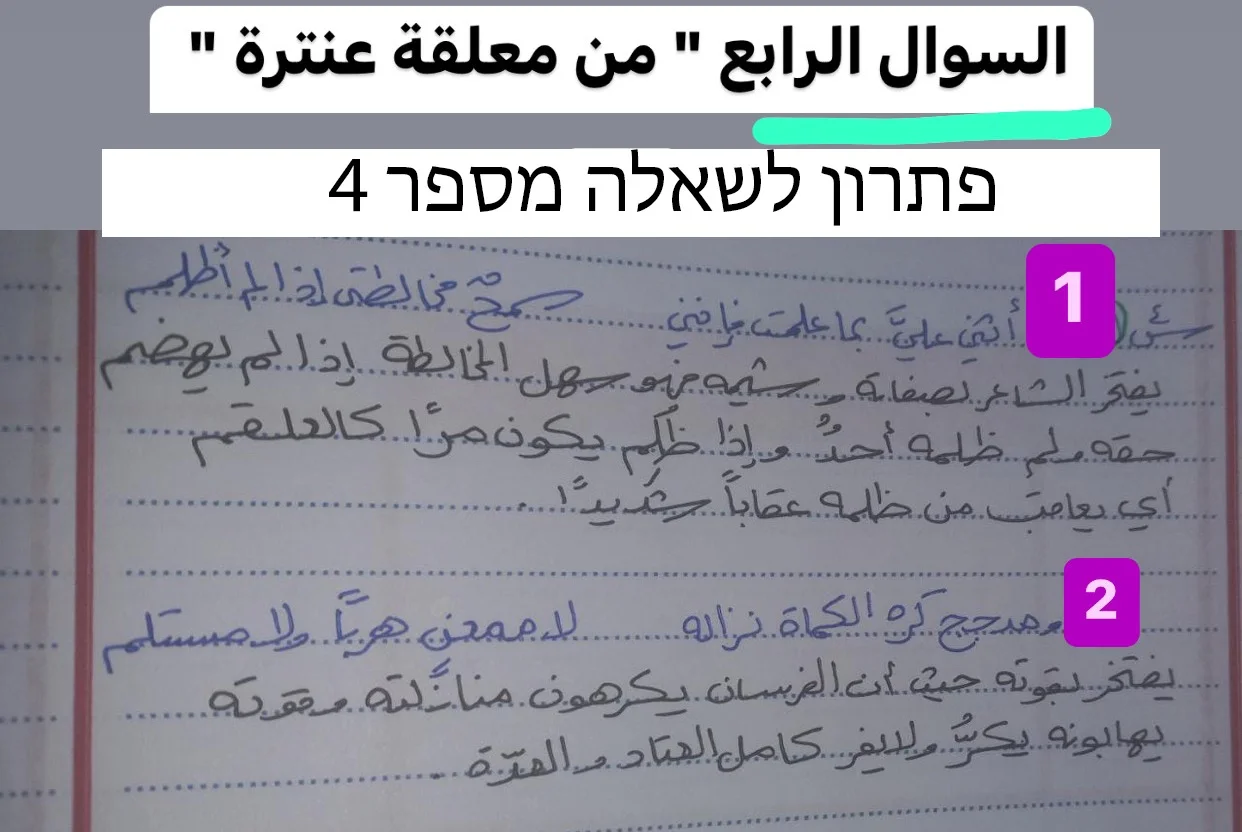 السوال الرابع " من معلقة عنترة "
פתרון לשאלה מספר 4
1
أثني عليَّ بما علمت فإنني سمحٌ مخالطتي إذا لم أُظلم
يفتخر الشاعر بصفاته وشيمه فهو سهل المخالطة إذا لم يهضم
حقه ولم ظلمه أحدٌ وإذا ظُلم يكون مرًّا كالعلقم
أي يعاقب من ظلمه عقاباً شديدًا.
2
ومدجج كره الكماة نزاله لا ممعن هربًا ولا مستلم
يفتخر بقوته حيث أن الفرسان يكرهون منازلته وقوته
يهابونه يكرُّ ولا يفر كامل العتاد والعدّة.